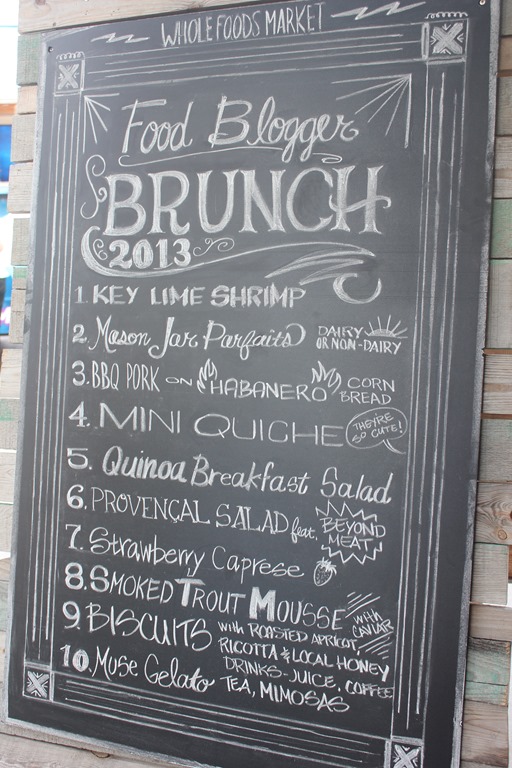 WHOLE FOODS MARKET
Food Blogger
BRUNCH
2013
1. KEY LIME SHRIMP
2. Mason Jar Parfaits DAIRY OR NON-DAIRY
3. BBQ PORK ON HABANERO CORN BREAD
4. MINI QUICHE THEY'RE SO CUTE!
5. Quinoa Breakfast Salad
6. PROVENÇAL SALAD feat. BEYOND MEAT
7. Strawberry Caprese
8. SMOKED TROUT MOUSSE WITH CAVIAR
9 BISCUITS WITH ROASTED APRICOT,
RICOTTA & LOCAL HONEY
10. Muse Gelato
DRINKS - JUICE, COFFEE
TEA, MIMOSAS